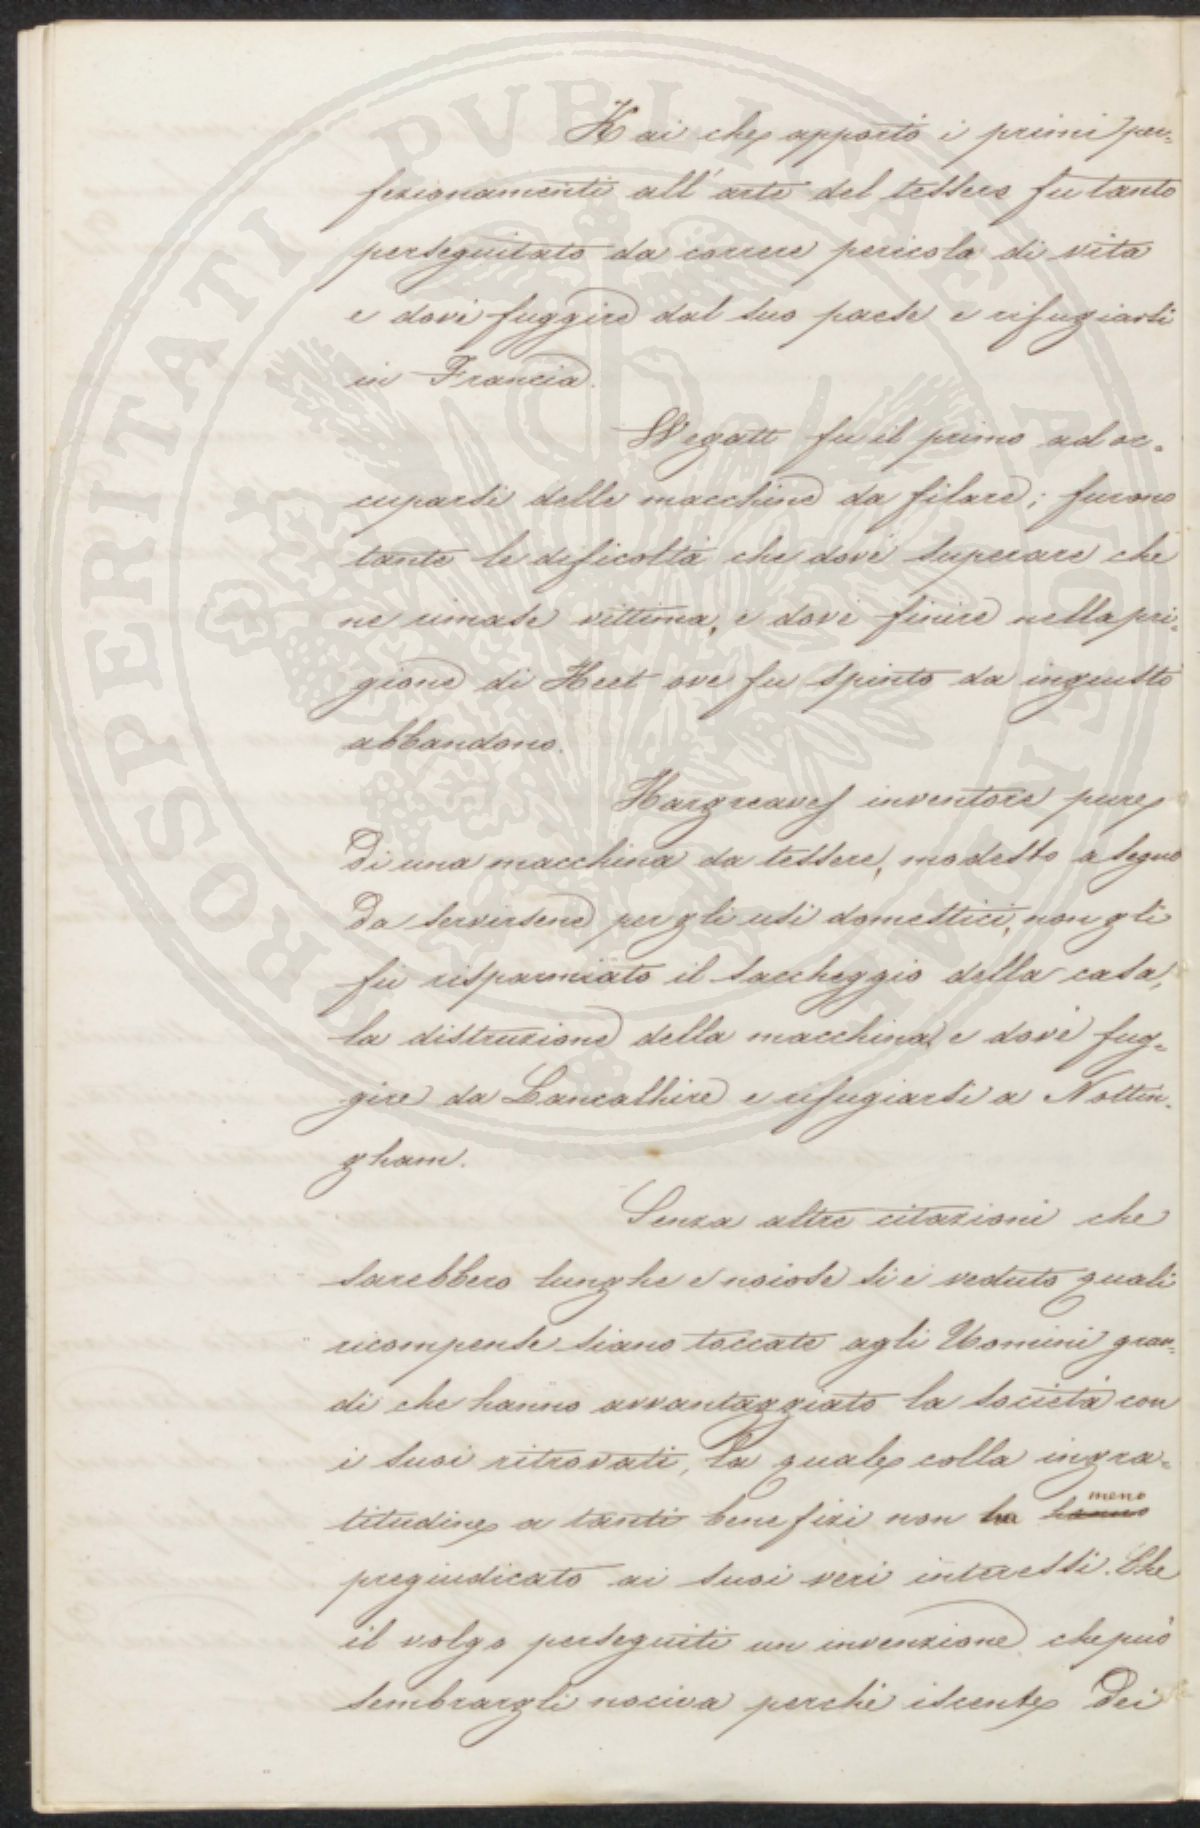 Kai che apportò i primi per=
fezionamenti all'arte del tessere fu tanto
perseguitato da correre pericolo di vita
e dové fuggire dal suo paese e rifugiarsi
in Francia.
Wegatt fu il primo ad oc=
cuparsi delle macchine da filare; furono
tante le dificoltà che dové superare che
ne rimase vittima, e dové finire nella pri=
gione di Heet ove fu spinto da ingiusto
abbandono.
Hargreaves inventore pure
di una macchina da tessere, modesto a segno
da servirsene per gli usi domestici, non gli
fu risparmiato il saccheggio della casa,
la distruzione della macchina e dové fug=
gire da Lancashire e rifugiarsi a Nottin=
gham.
Senza altre citazioni che
sarebbero lunghe e noiose si è veduto quali
ricompense siano toccate agli Uomini gran=
di che hanno avvantaggiato la società con
i suoi ritrovati, la quale colla ingra=
titudine a tanti benefizi non ha hanno meno
pregiudicato ai suoi veri interessi. Che
il volgo perseguiti un invenzione che può
sembrargli nociva perché iscente dei
PROSPERITATI PVBLICAE AVGENDAE